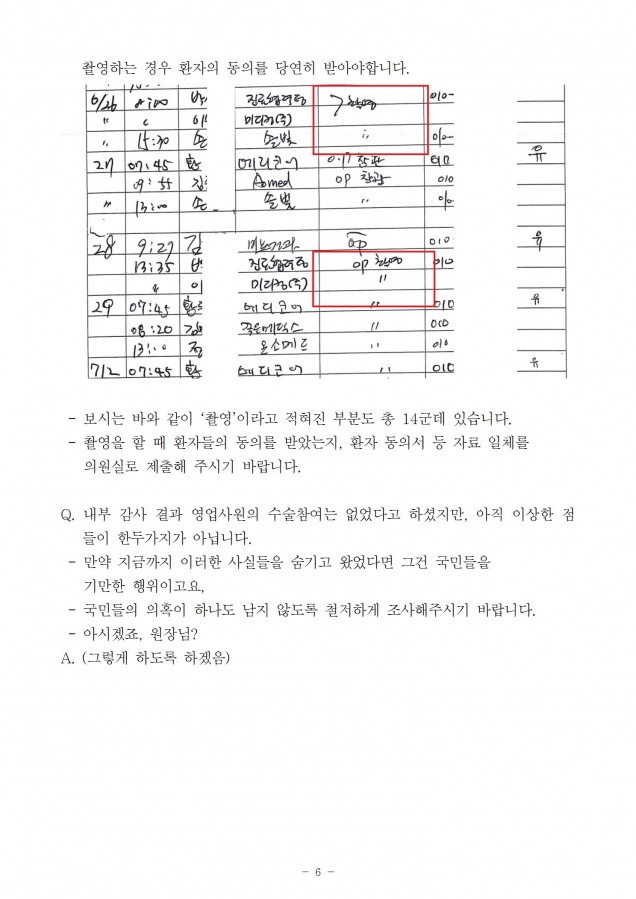 촬영하는 경우 환자의 동의를 당연히 받아야합니다.
6/26 8:00 박 진료협력팀 촬영 010-
" " 이 미디어(주)
" 15:30 손 솔빛 " 010-
27 07:45 황 메디코어 010 유
09:55 김 Aomed op 참관 010
" 13:00 손 솔빛 " 010
28 9:27 김 op 010 유
13:35 박 진료협력팀 op 촬영 010
" 이 미디어(주) "
29 07:45 황 메디코어 " 010 유
08:20 김 " 010
13:00 정 온스메드 " 010
7/2 07:45 황 메디코어 " 010 유
- 보시는 바와 같이 ‘촬영’이라고 적혀진 부분도 총 14군데 있습니다.
- 촬영을 할 때 환자들의 동의를 받았는지, 환자 동의서 등 자료 일체를
의원실로 제출해 주시기 바랍니다.
Q. 내부 감사 결과 영업사원의 수술참여는 없었다고 하셨지만, 아직 이상한 점
들이 한두가지가 아닙니다.
- 만약 지금까지 이러한 사실들을 숨기고 왔었다면 그건 국민들을
기만한 행위이고요,
- 국민들의 의혹이 하나도 남지 않도록 철저하게 조사해주시기 바랍니다.
- 아시겠죠, 원장님?
A. (그렇게 하도록 하겠음)
- 6 -